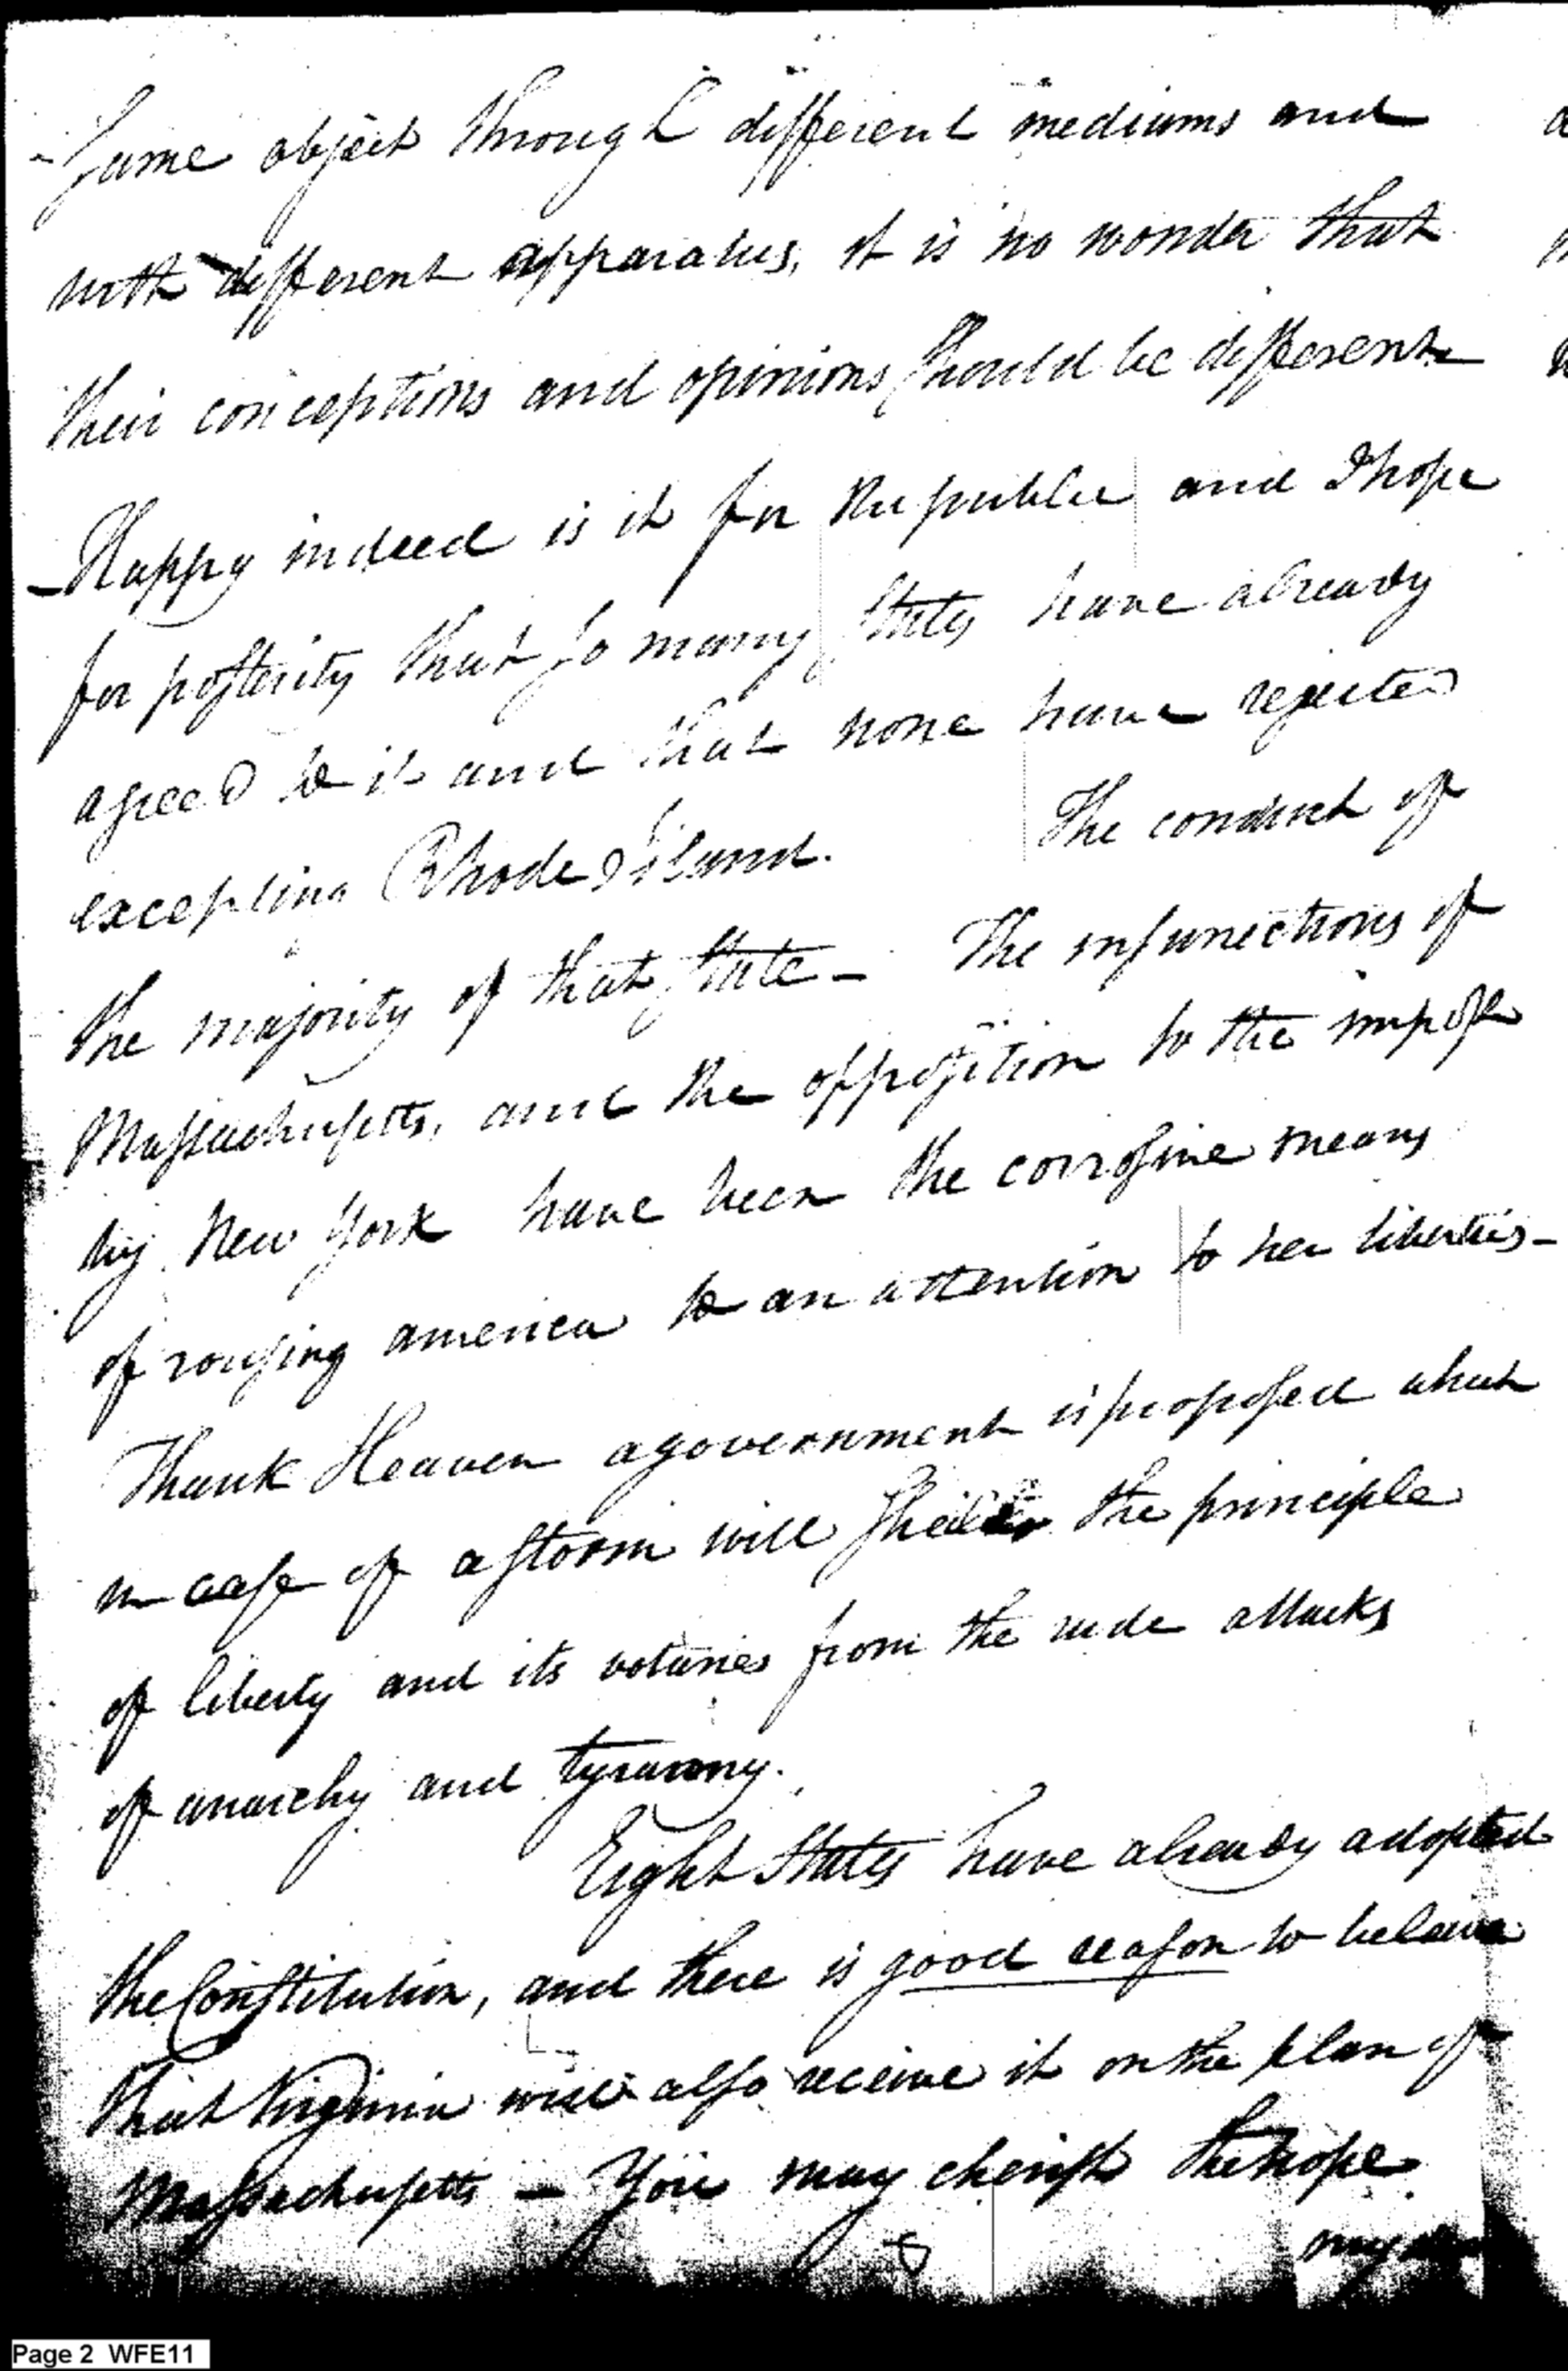 same object through different mediums and
with different apparatus, it is no wonder that
their conceptions and opinions should be different
- Happy indeed is it for the public and I hope
for posterity that so many States have already
agreed to it and that none have rejected
excepting Rhode Island. The conduct of
the majority of that State - The insurrections of
Massachusetts, and the opposition to the impost
by New York have been the corrosive means
of rousing america to an attention to her liberties -
Thank Heaven a government is proposed which
in case of a storm will the principle
of liberty and its votaries from the rude attacks
of anarchy and tyranny.
Eight States have already adopted
the Constitution, and there is good reason to believe
that Virginia will also receive it on the plan of
Massachusetts - You may cherish the hope
my
Page 2 WFE11